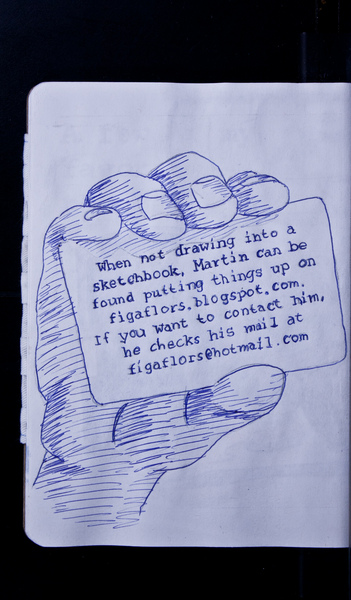 When not drawing into a
sketchbook, Martin can be
found putting things up on
figaflors.blogspot.com.
If you want to contact him,
he checks his mail at
figaflors@hotmail.com